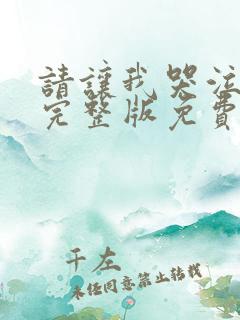 請讓我哭泣
完整版免費
千左
未經同意禁止轉載